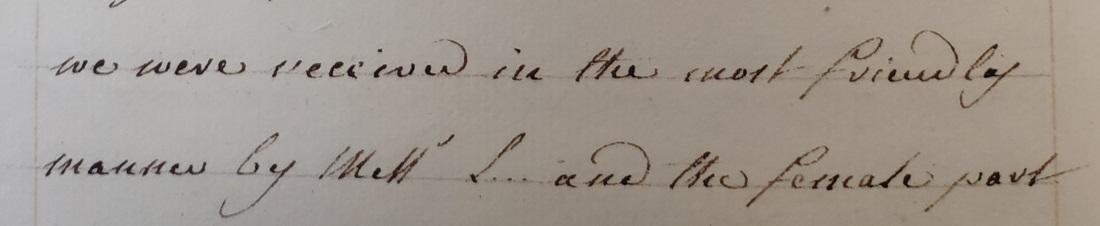 we were received in the most friendly
manner by Mess^rs L... and the female part